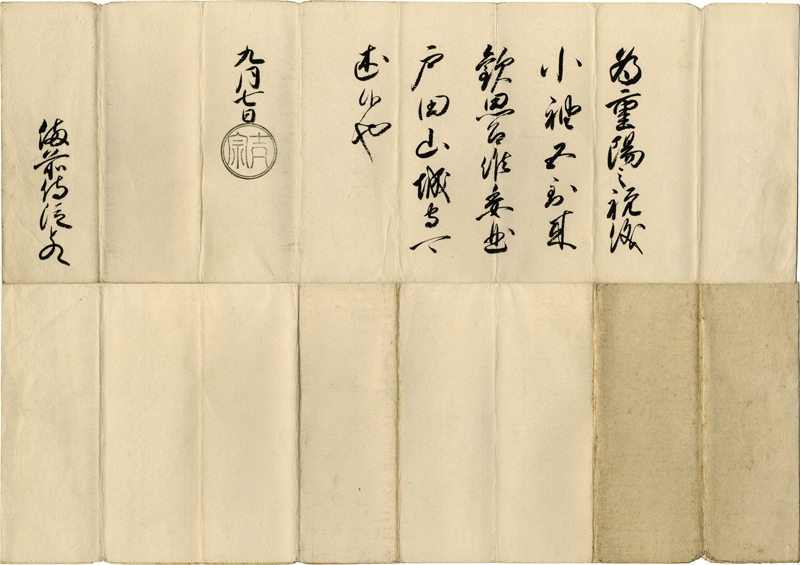 為重陽之祝儀
小袖五到来
歓思召候委曲
戸田山城守可
述候也
九月七日
吉宗
備前侍従とのへ